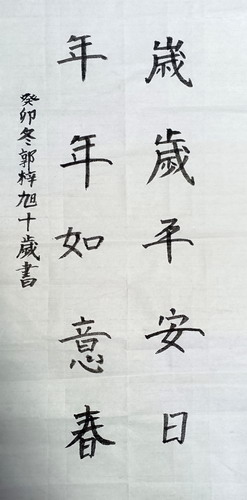 歲歲平安日
年年如意春
癸卯冬郭梓旭十歲書